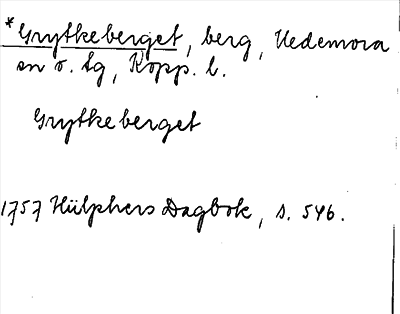 *Grytkeberget, berg, Hedemora
sn o. tg, Kopp. l.
Grytkeberget
1757 Hülphers Dagbok, s. 546.